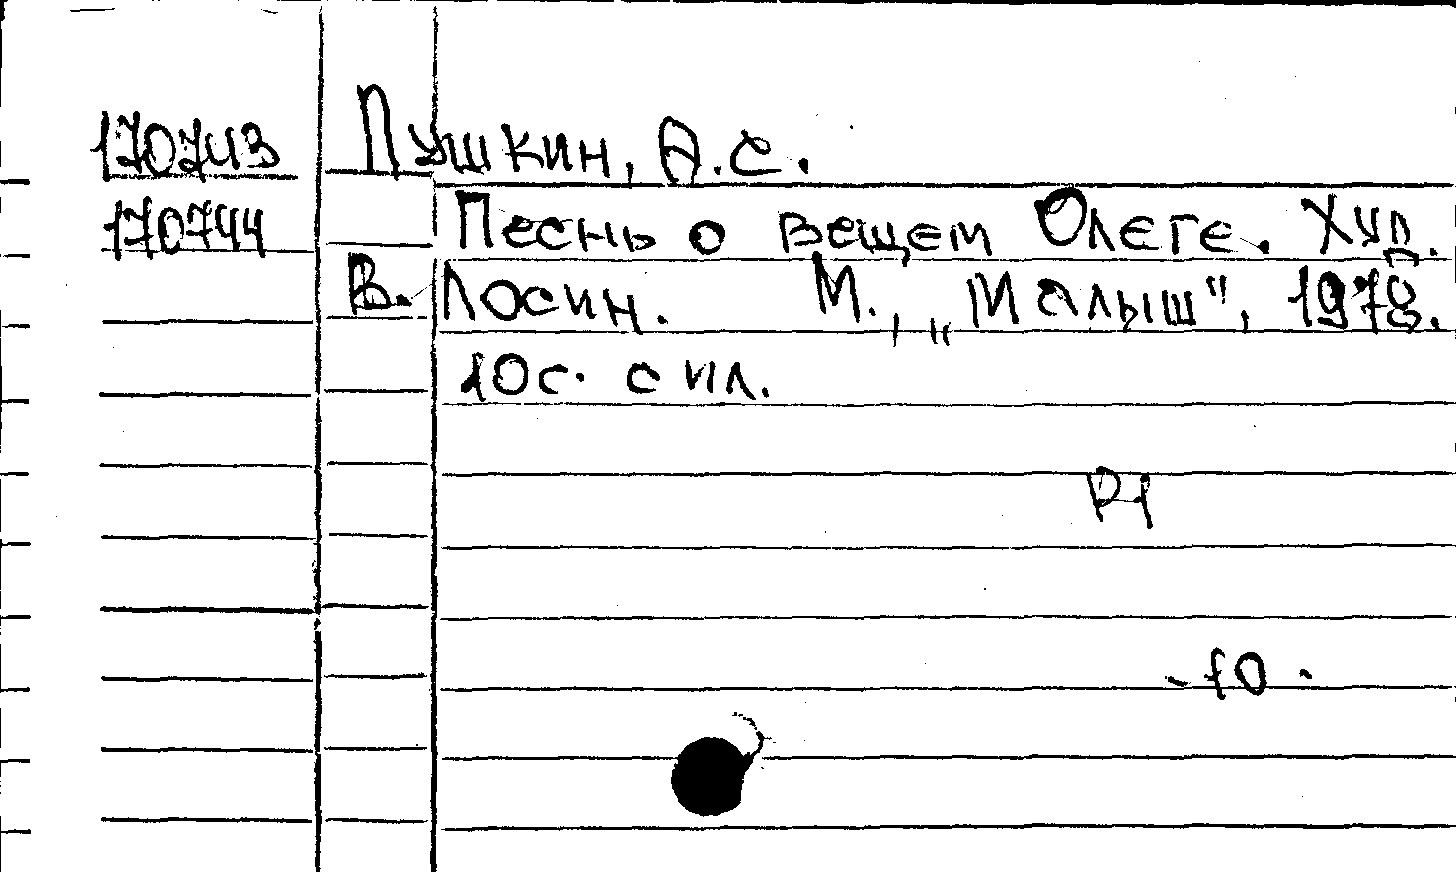 170743 Пушкин, А.С.
170744 Песнь о вещем Олеге. Худ.
В. Лосин. М., „Малыш", 1978.
10с. с ил.
Р1
-10-